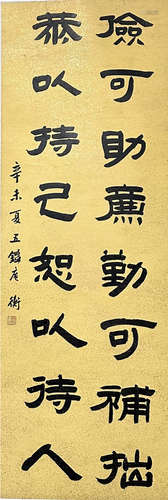 儉可助廉勤可補拙
恭以持己恕以待人
辛未夏五